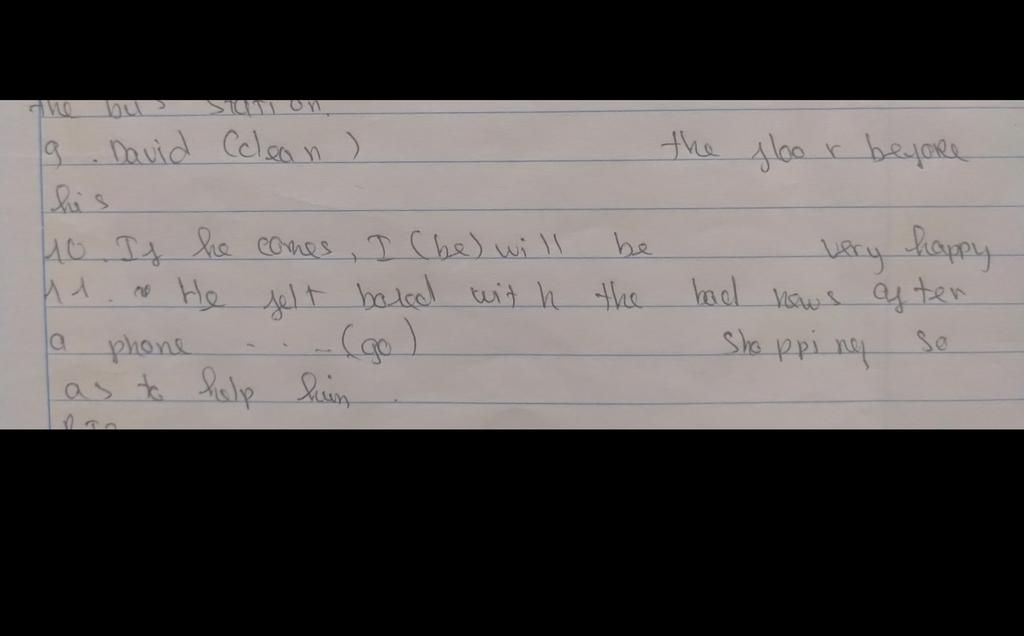 the bus station.
9. David (clean) the floor before
his
10. If he comes, I (be) will be very happy
11. He felt bored with the bad news after
a phone ... (go) shopping so
as to help him.